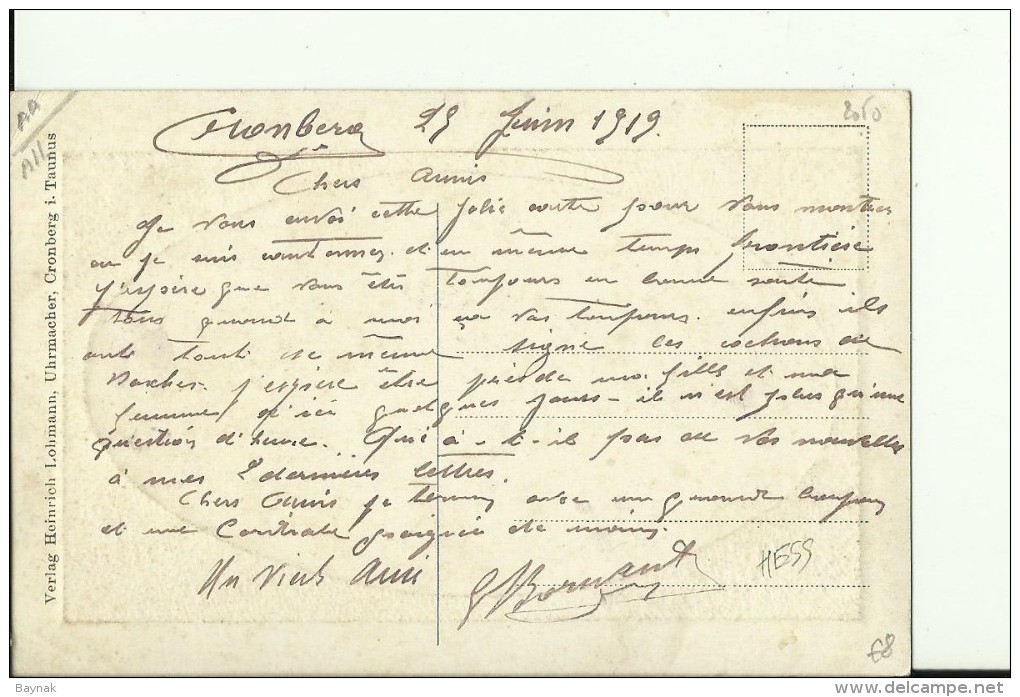 2010
AA
All
Cronberg 29 Juin 1919.
Chers Amis
Je vous envoi cette jolie carte pour vous montrer
ou je suis cantonner. et en même temps frontière
J'espère que vous êtes toujours en bonne santé
tous quand à moi ça vas toujours. enfin ils
ont tout de même signé les cochons de
Boches. j'espère être près de ma fille et ma
femme d'ici quelques jours - il n'est plus qu'une
question d'heure. Qui a-t-il pas de vos nouvelles
à mes 2 dernières lettres.
Chers Amis je termine avec un grand
et une Cordiale poignée de mains.
Un Vieil Ami
HESS
€8
Verlag Heinrich Lohmann, Uhrmacher, Cronberg i. Taunus
Baynak
www.delcampe.net